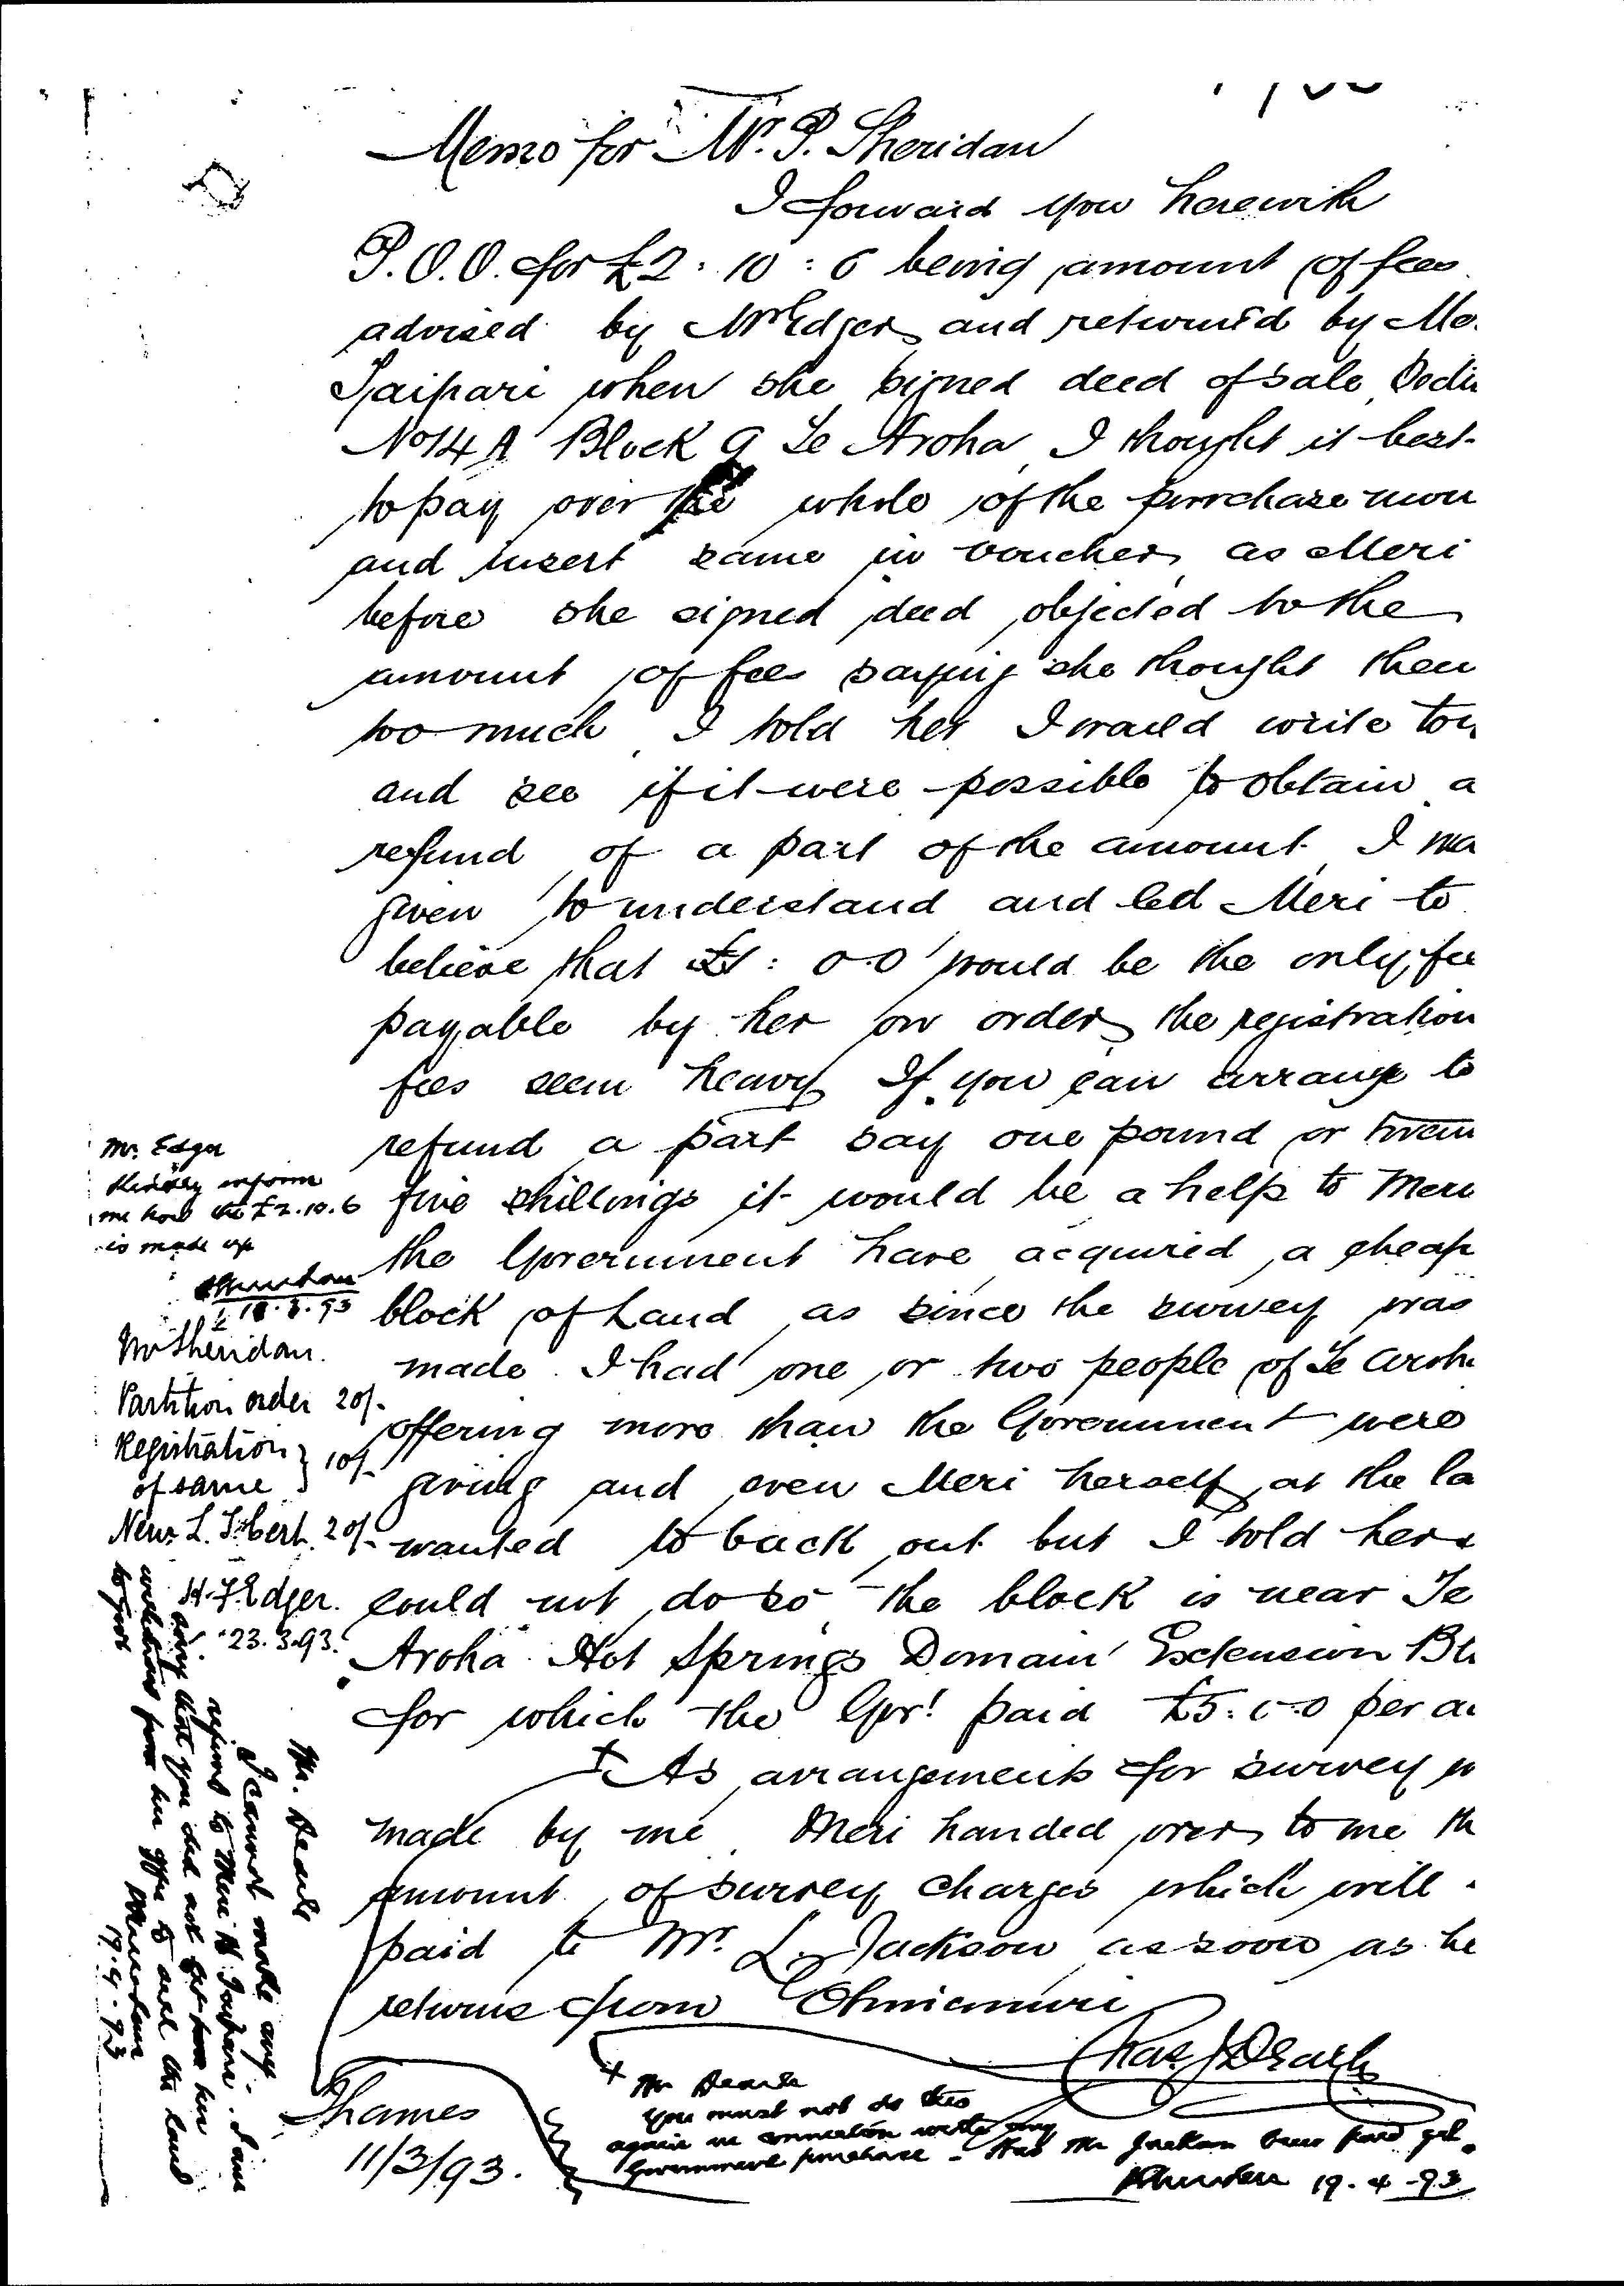 Memo for Mr. P. Sheridan
I forward you herewith
P.O.O. for £2 : 10 : 6 being amount of fees
advised by Mr Edger and returned by Me
Taipari when she signed deed of sale
No 14 A Block 9 Te Aroha, I thought it best
to pay over the whole of the purchase mon
and insert same in voucher, as Meri
before she signed deed objected to the
amount of fees saying she thought them
too much, I told her I would write to
and see if it were possible to obtain a
refund of a part of the amount, I wa
given to understand and led Meri to
believe that £1 : 0.0 would be the only fee
payable by her on order, the registration
fees seem heavy. If you can arrange to
refund a part say one pound or twen
five shillings it would be a help to Meri
the Government have acquired a cheap
block of Land as since the survey was
made I had one or two people of Te Aroh
offering more than the Government were
giving and even Meri herself at the la
wanted to back out but I told her
could not do so - the block is near Te
Aroha Hot Springs Domain Extension Bl
for which the Gov! paid £5.0.0 per a
+ As arrangements for survey w
made by me, Meri handed over to me th
amount of survey charges which will
paid to Mr. L. Jackson as soon as he
returns from Ohinemuri
Chas J Dearle
Thames
11/3/93.
Mr. Edger
Kindly inform
me how the £2.10.6
is made up
P Sheridan
18.3.93
Mr Sheridan.
Partition order 20/-
Registration
of same } 10/-
New L. T. Cert. 20/-
H. F. Edger.
23.3.93.
Mr. Dearle
I cannot make any
refund to Meri H. Taipari. I am
sorry that you did not get from her
written from her offer to sell the land
to Govt
P Sheridan
19.4.93
+ Mr Dearle
You must not do this
again in connection with any
Government purchase - Has Mr Jackson been paid yet.
P Sheridan 19.4-93